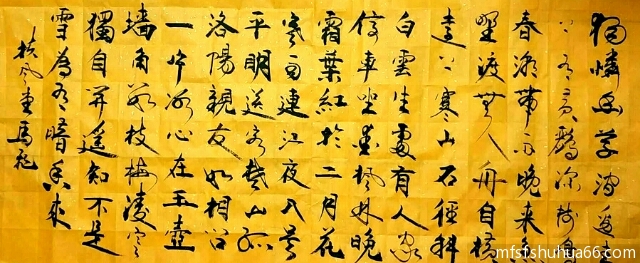 獨憐幽草澗邊生
上有黃鸝深樹鳴
春潮帶雨晚來急
野渡無人舟自橫
遠上寒山石徑斜
白雲生處有人家
停車坐愛楓林晚
霜葉紅於二月花
寒雨連江夜入吳
平明送客楚山孤
洛陽親友如相問
一片冰心在玉壺
墻角數枝梅凌寒
獨自開遥知不是
雪為有暗香來
扶風堂馬
mfsfshuhua66.com